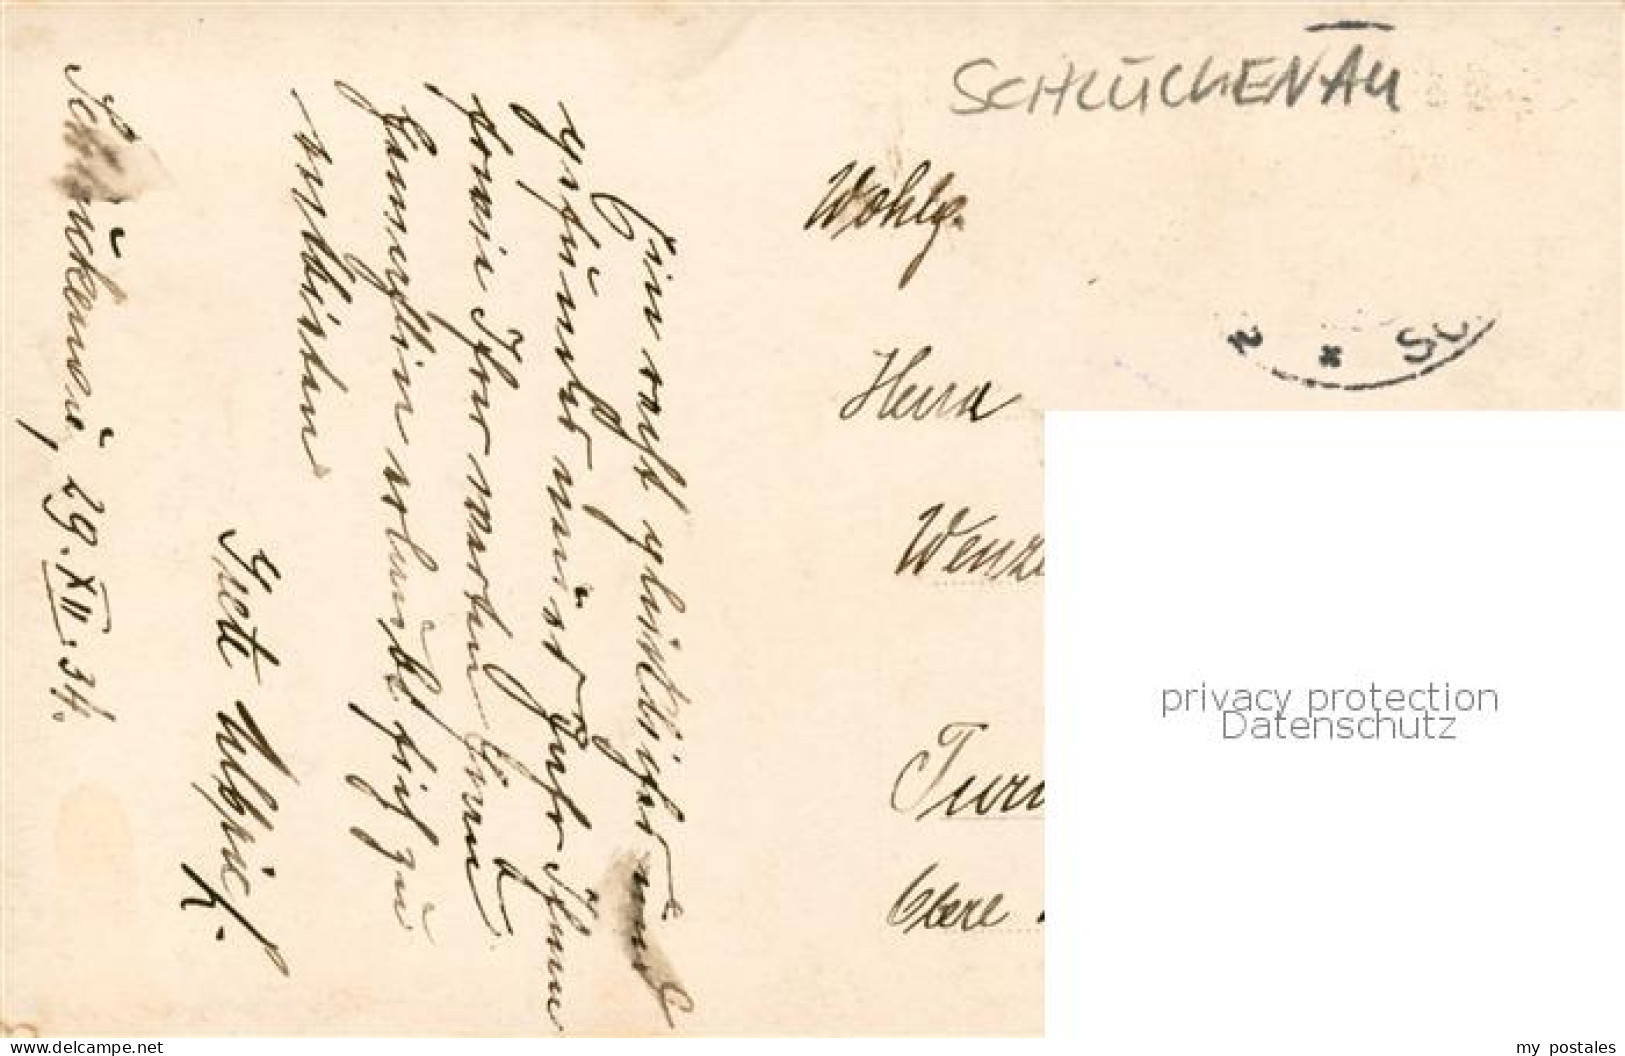 SCHLÜCKENAU
Wohlg.
Herrn
Wenz
Turn
Obere
Ein recht glückliches und
gesundes neues Jahr Ihnen
sowie Ihrer werten Frau
Gemahlin erlaubt sich zu
entbieten
Ulbrich.
Schluckenau, 29. XII. 34.
* SC
privacy protection
Datenschutz
www.delcampe.net
my_postales